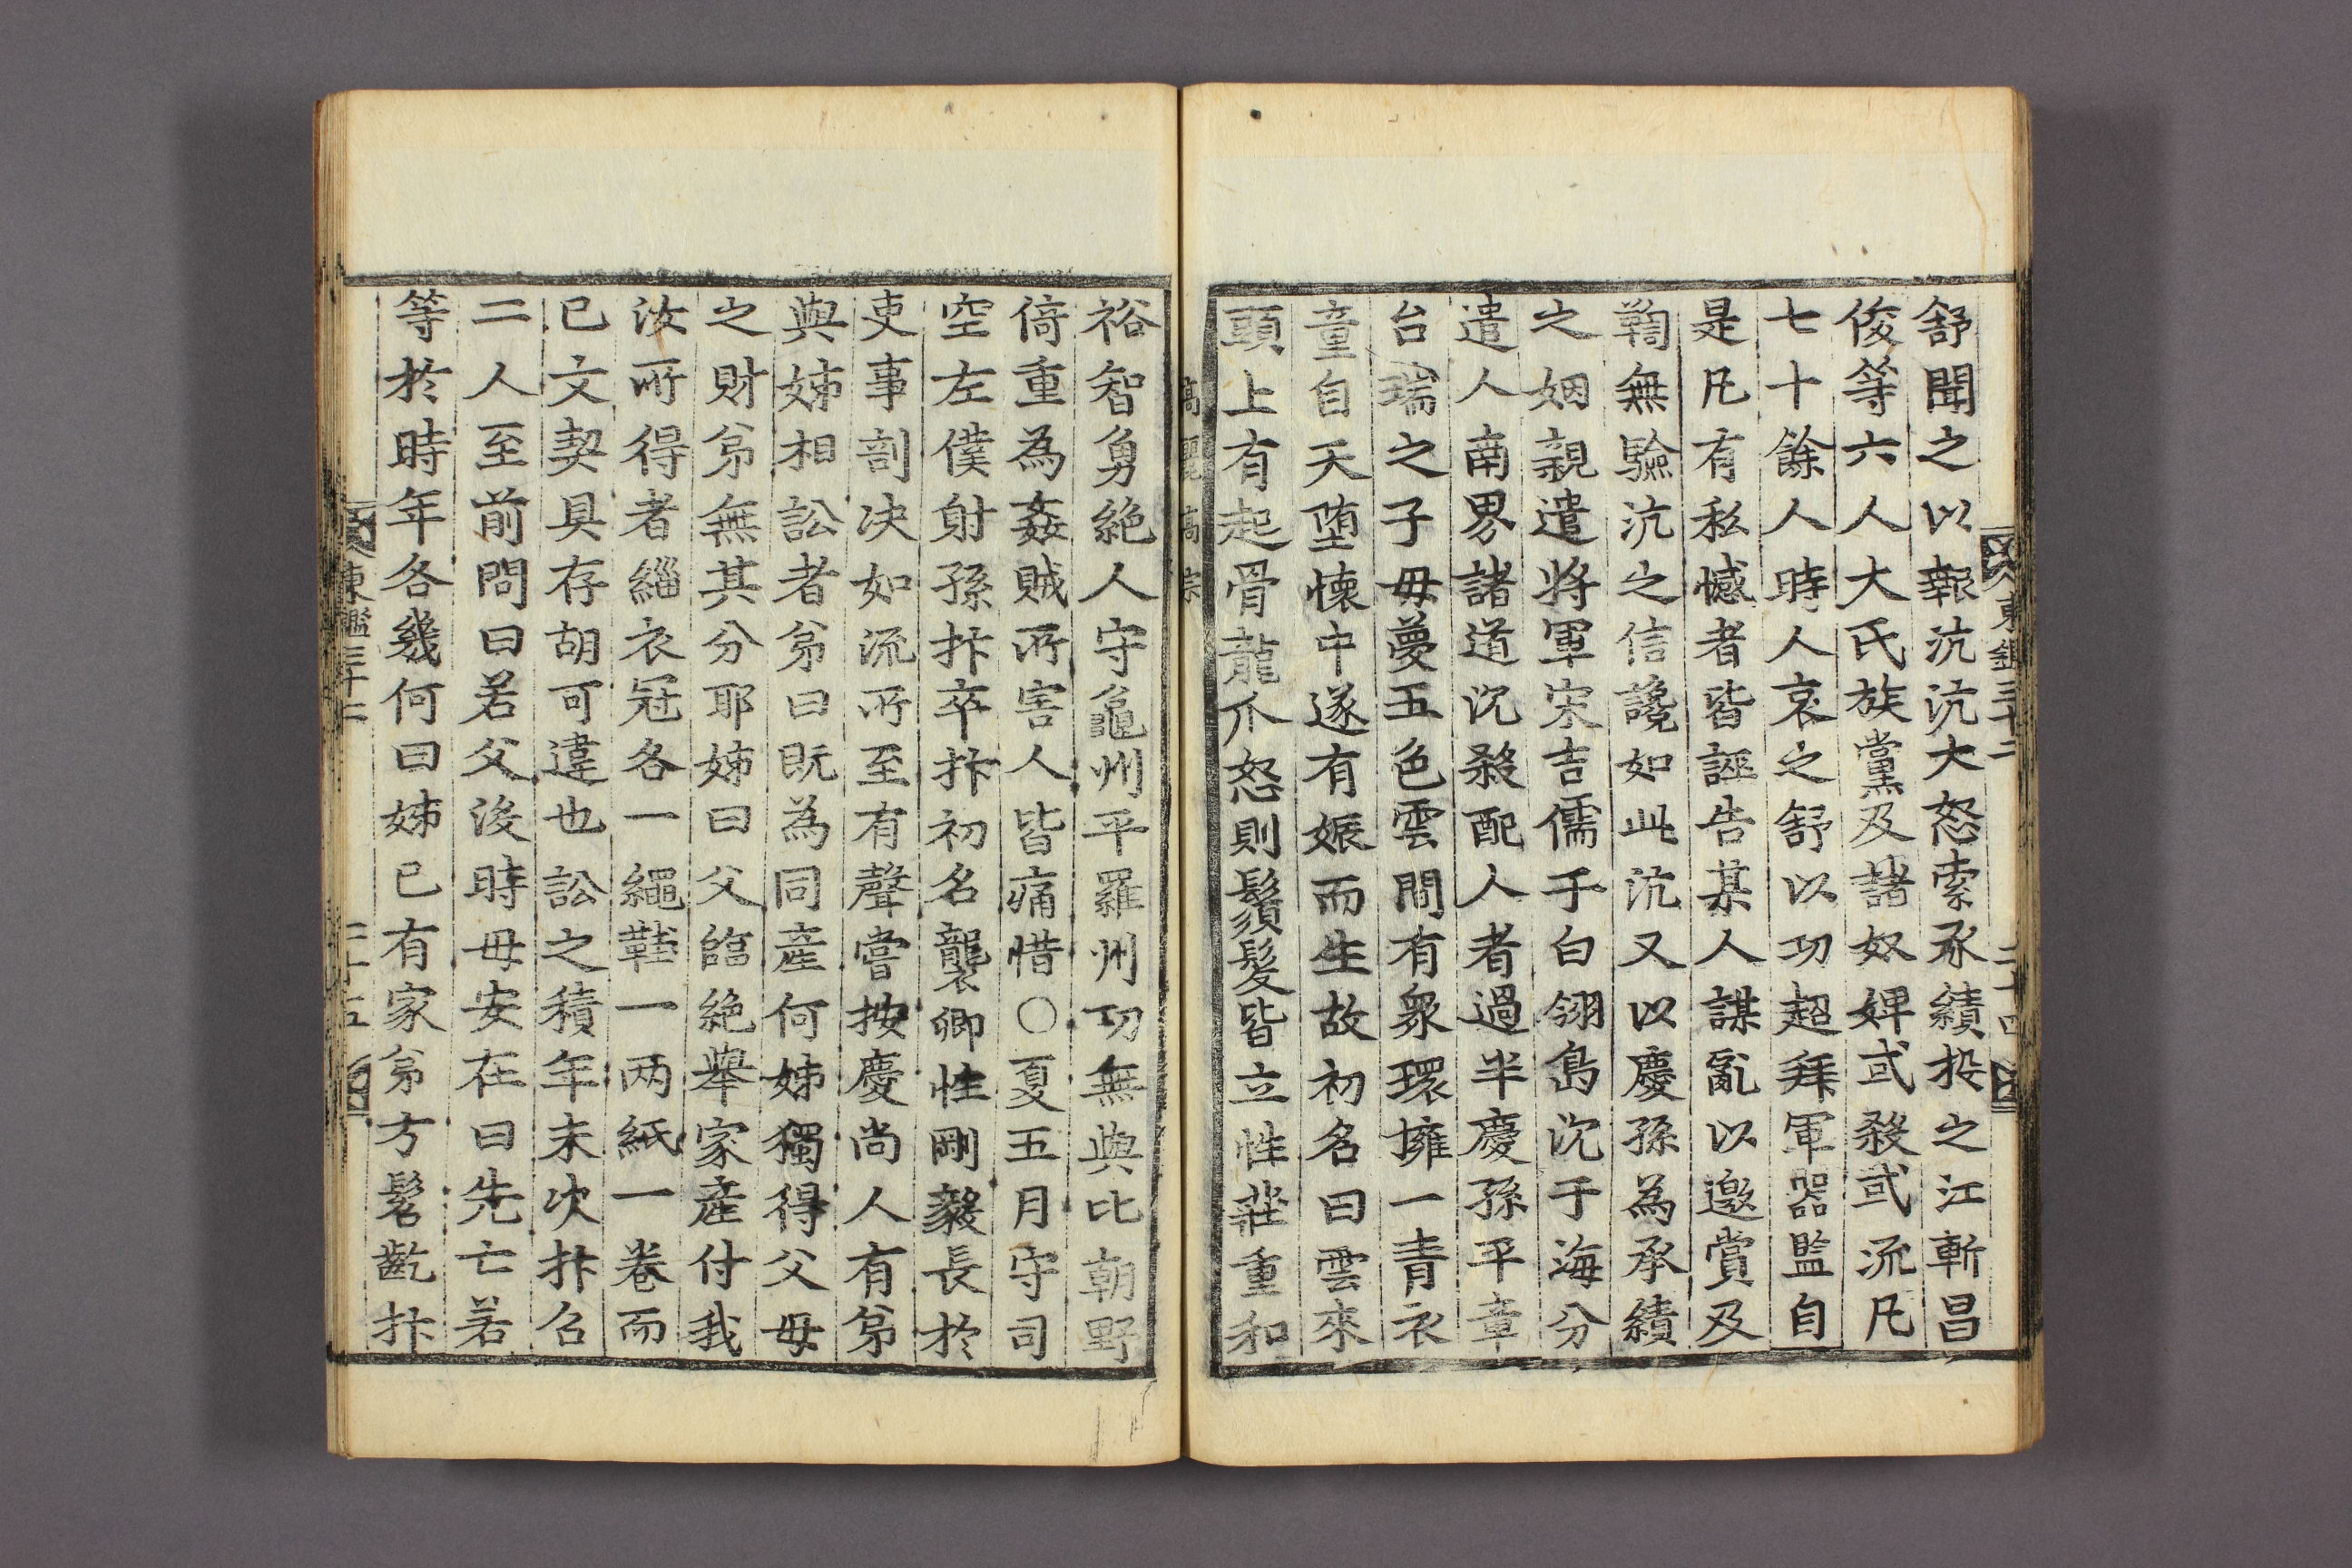 舒聞之以報沆沆大怒索承績投之江斬昌
俊等六人大氏族黨及諸奴婢或殺或流凡
七十餘人時人哀之舒以功超拜軍器監自
是凡有私憾者皆誣告某人謀亂以邀賞及
鞫無驗沆之信讒如此沆又以慶孫為承績
之姻親遣將軍宋吉儒于白翎島沈于海分
遣人南界諸道沈殺配人者過半慶孫平章
台瑞之子母夢五色雲間有衆環擁一青衣
童自天墮懷中遂有娠而生故初名曰雲來
頭上有起骨龍爪怒則鬚髮皆立性莊重和
高麗高宗
裕智勇絕人守龜州平羅州功無與比朝野
倚重為姦賊所害人皆痛惜○夏五月守司
空左僕射孫抃卒抃初名襲卿性剛毅長於
吏事剖决如流所至有聲嘗按慶尚人有弟
與姊相訟者弟曰旣為同產何姊獨得父母
之財弟無其分耶姊曰父臨絕舉家產付我
汝所得者緇衣冠各一繩鞋一两紙一卷而
已文契具存胡可違也訟之積年未决抃召
二人至前問曰若父沒時母安在曰先亡若
等於時年各幾何曰姊已有家弟方髫齔抃
東鑑三十二